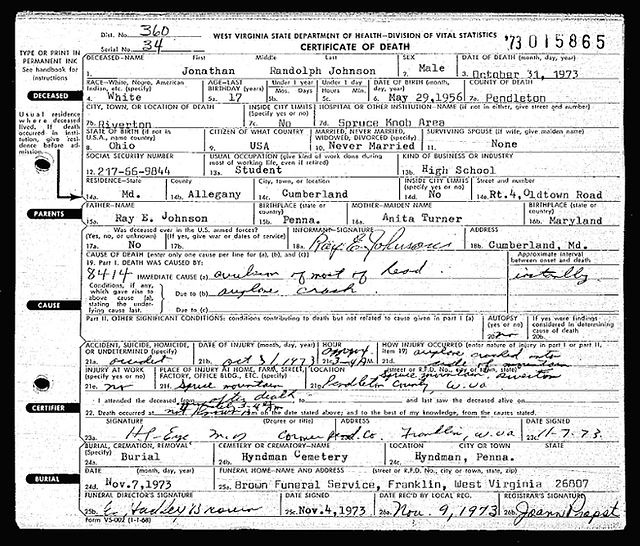 Dist. No. 360
Serial No. 34
WEST VIRGINIA STATE DEPARTMENT OF HEALTH—DIVISION OF VITAL STATISTICS
CERTIFICATE OF DEATH
'73 015865
TYPE OR PRINT IN PERMANENT INK
See handbook for instructions
DECEASED—NAME First Middle Last SEX DATE OF DEATH (month, day, year)
1. Jonathan Randolph Johnson 2. Male 3. October 31, 1973
RACE—White, Negro, American Indian, etc. (specify) AGE—LAST BIRTHDAY (years) Under 1 year Mos. Days Under 1 day Hours Min. DATE OF BIRTH (month, day, year) COUNTY OF DEATH
4. White 5a. 17 5b. 5c. 6. May 29, 1956 7a. Pendleton
DECEASED
CITY, TOWN, OR LOCATION OF DEATH INSIDE CITY LIMITS (Specify yes or no) HOSPITAL OR INSTITUTION—NAME (if not in either, give street and number)
7b. Riverton 7c. No 7d. Spruce Knob Area
Usual residence where deceased lived. If death occurred in institution, give residence before admission.
STATE OF BIRTH (if not in U.S.A., name country) CITIZEN OF WHAT COUNTRY MARRIED, NEVER MARRIED, WIDOWED, DIVORCED (specify) SURVIVING SPOUSE (if wife, give maiden name)
8. Ohio 9. USA 10. Never Married 11. None
SOCIAL SECURITY NUMBER USUAL OCCUPATION (give kind of work done during most of working life, even if retired) KIND OF BUSINESS OR INDUSTRY
12. 217-66-9844 13a. Student 13b. High School
RESIDENCE—State County City, town, or location INSIDE CITY LIMITS (Specify yes or no) Street and number
14a. Md. 14b. Allegany 14c. Cumberland 14d. No 14e. Rt. 4, Oldtown Road
PARENTS
FATHER—NAME BIRTHPLACE (state or country) MOTHER—MAIDEN NAME BIRTHPLACE (state or country)
15a. Ray E. Johnson 15b. Penna. 16a. Anita Turner 16b. Maryland
Was deceased ever in the U.S. armed forces? (Yes, no, or unknown) (If yes, give war or dates of service) INFORMANT—SIGNATURE ADDRESS
17a. No 17b. 18a. Ray E. Johnson 18b. Cumberland, Md.
CAUSE OF DEATH (enter only one cause per line for (a), (b), and (c))
19. Part I. DEATH WAS CAUSED BY: Approximate interval between onset and death
8414 IMMEDIATE CAUSE (a) avulsion of most of head
Conditions, if any, which gave rise to above cause (a), stating the underlying cause last.
Due to (b) airplane crash
Due to (c)
CAUSE
Part II. OTHER SIGNIFICANT CONDITIONS: conditions contributing to death but not related to cause given in part I (a) AUTOPSY (yes or no) If yes were findings considered in determining cause of death
20a. no 20b.
ACCIDENT, SUICIDE, HOMICIDE, OR UNDETERMINED (specify) DATE OF INJURY (month, day, year) HOUR HOW INJURY OCCURRED (enter nature of injury in part I or part II, item 19)
21a. accident 21b. Oct 31/1973 21c. 21d. airplane crashed into side of mountain
INJURY AT WORK (specify yes or no) PLACE OF INJURY AT HOME, FARM, STREET, FACTORY, OFFICE BLDG., ETC. (specify) LOCATION (street or R.F.D. No., city or town, state)
21e. no 21f. Spruce mountain 21g. Spruce mountain, Riverton Pendleton County, W. Va
I attended the deceased from after death and last saw the deceased alive on
22. Death occurred at on the date stated above; and to the best of my knowledge, from the causes stated.
CERTIFIER
SIGNATURE (Degree or title) ADDRESS DATE SIGNED
23a. M.D. Coroner Co. Franklin, W. Va 23c. 11-7-73
BURIAL, CREMATION, REMOVAL (Specify) CEMETERY OR CREMATORY—NAME LOCATION CITY OR TOWN STATE
24a. Burial 24b. Hyndman Cemetery 24c. Hyndman, Penna.
BURIAL
DATE (month, day, year) FUNERAL HOME—NAME AND ADDRESS (street or R.F.D. No., city or town, state, zip)
24d. Nov. 7, 1973 25a. Brown Funeral Service, Franklin, West Virginia 26807
FUNERAL DIRECTOR'S SIGNATURE DATE SIGNED DATE REC'D BY LOCAL REG. REGISTRAR'S SIGNATURE
25b. Brown 25c. Nov. 4, 1973 26a. Nov. 9, 1973 26b. Joann Propst
Form VS-002 (1-1-68)